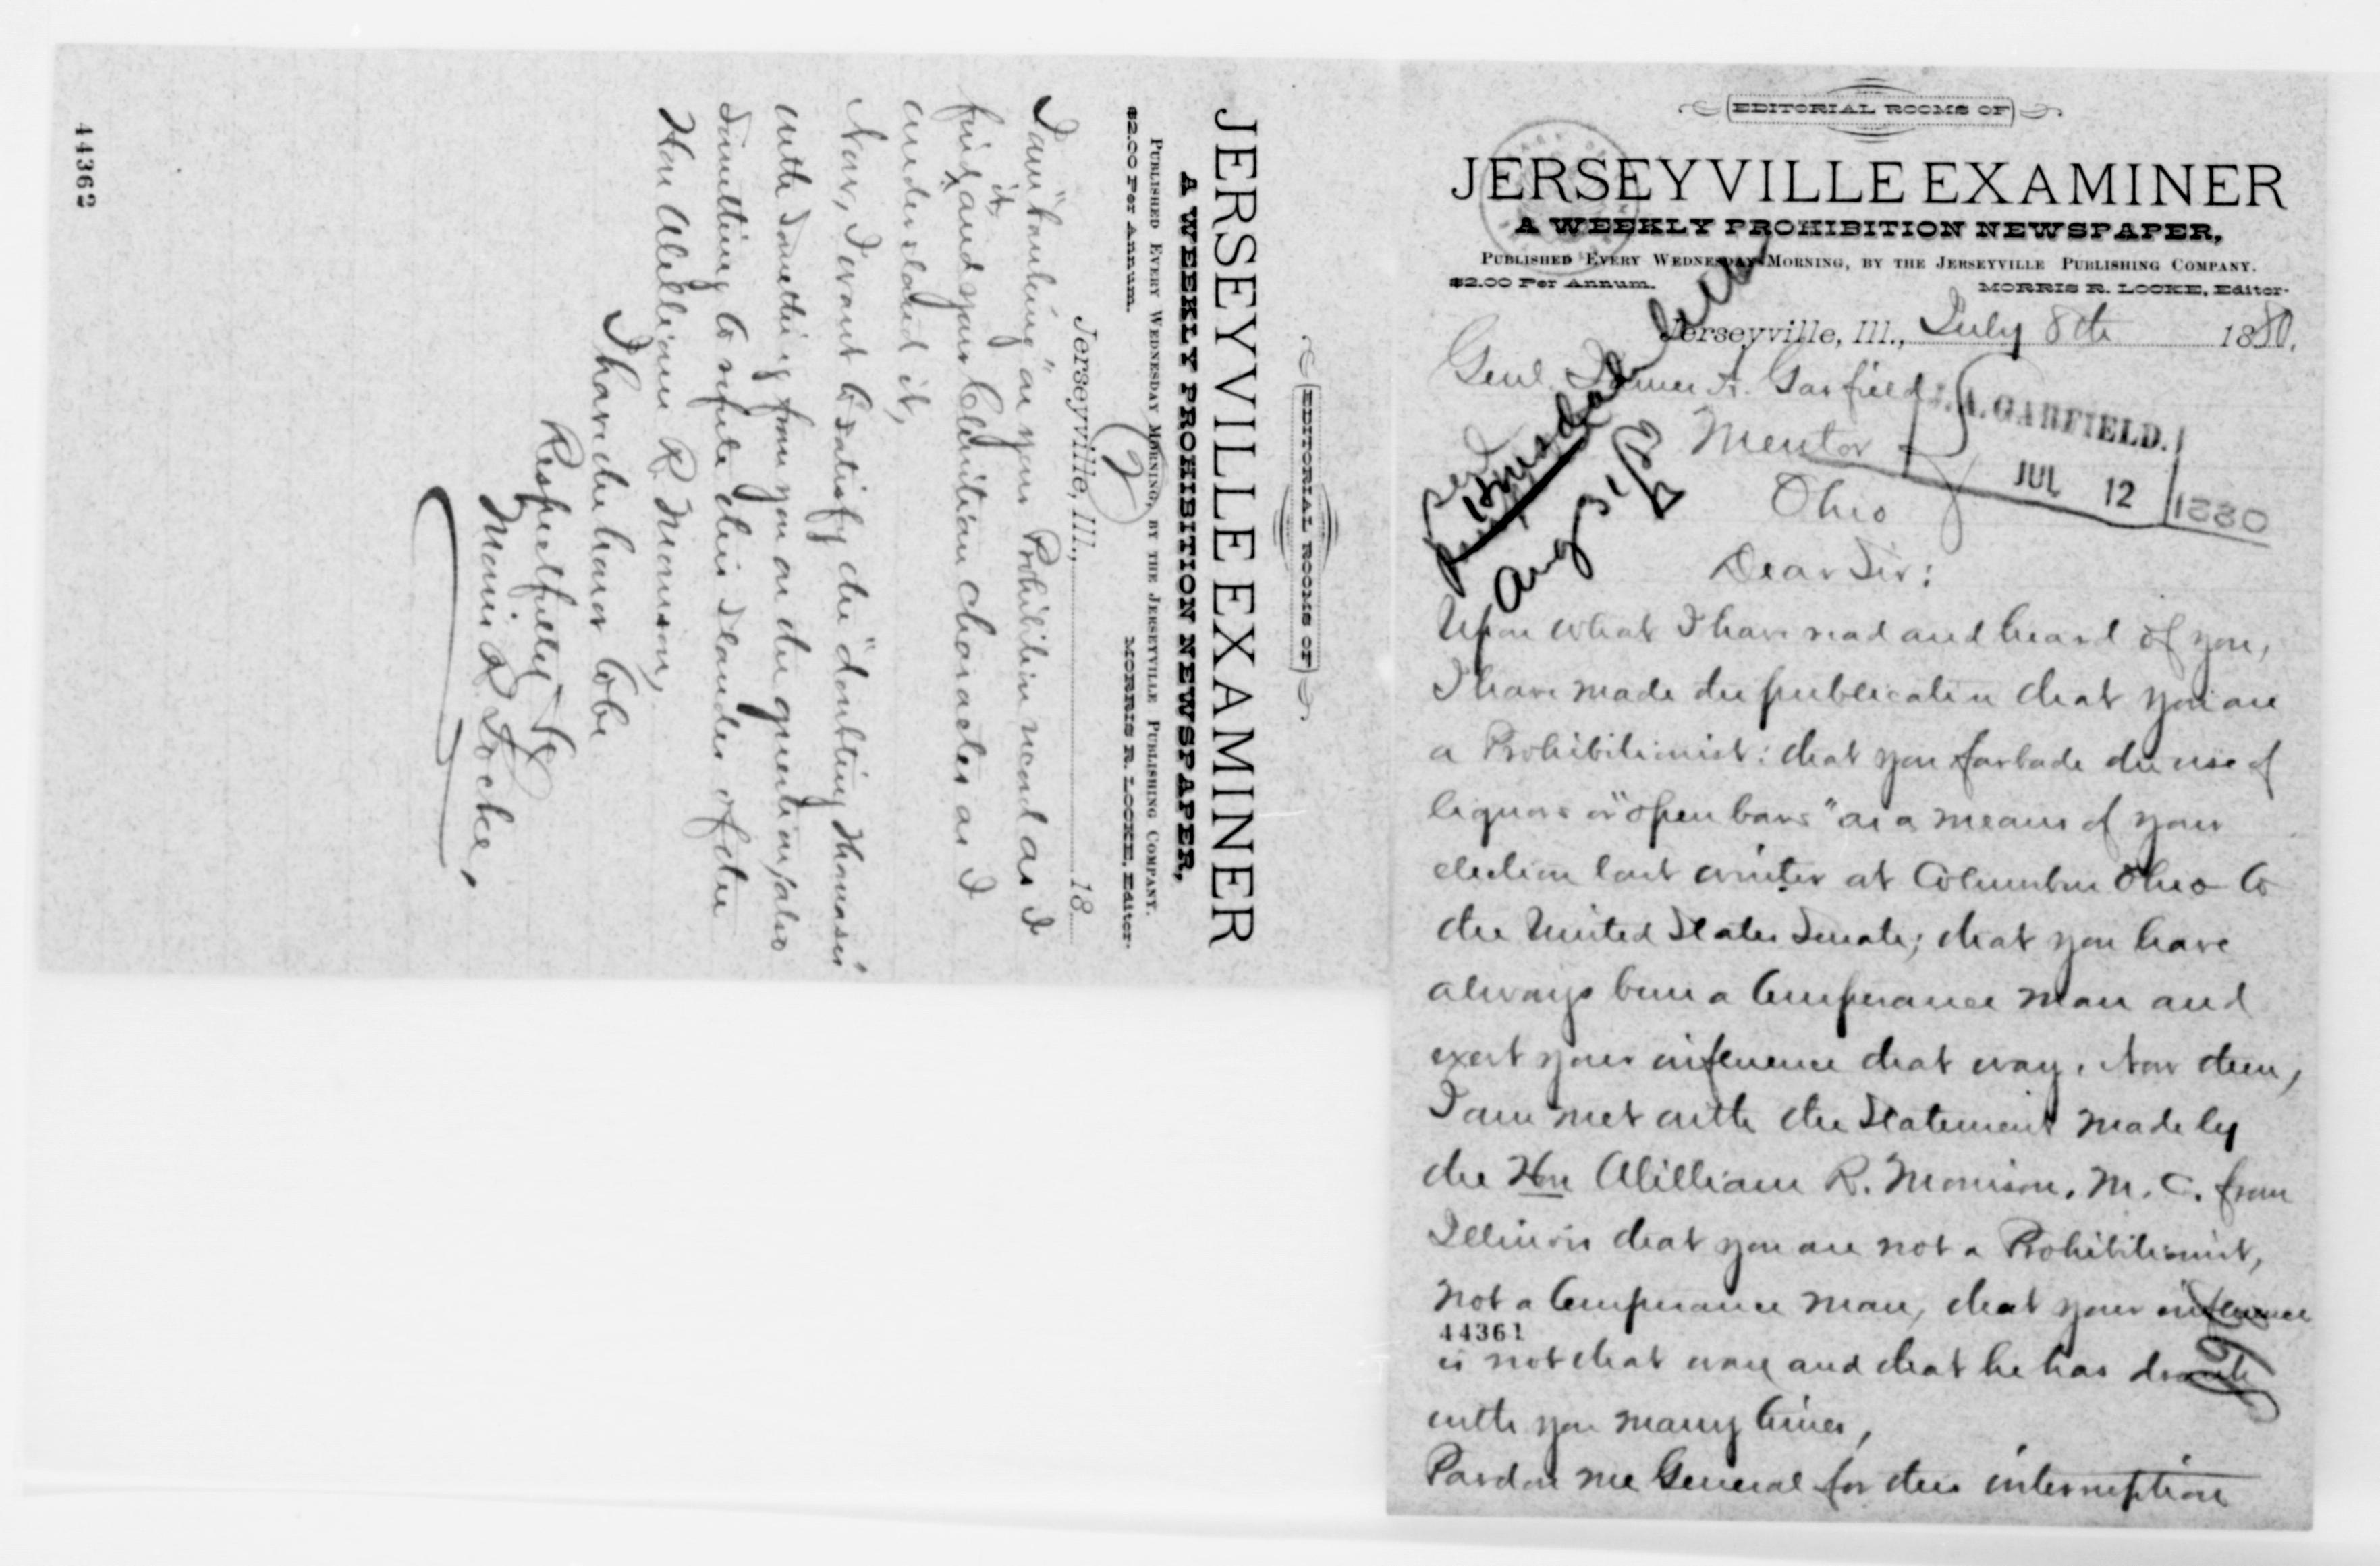 EDITORIAL ROOMS OF
JERSEYVILLE EXAMINER
A WEEKLY PROHIBITION NEWSPAPER,
PUBLISHED EVERY WEDNESDAY MORNING, BY THE JERSEYVILLE PUBLISHING COMPANY.
$2.00 Per Annum. MORRIS R. LOCKE, Editor.
Jerseyville, Ill., July 8th 1880.
Genl. James A. Garfield
J. A. GARFIELD.
Mentor
JUL 12 1880
Ohio
Hinsdale
Aug 31/80
Dear Sir:
Upon what I have read and heard of you,
I have made the publication that you are
a Prohibitionist: that you forbade the use of
liquors or "open bars" as a means of your
election last winter at Columbus Ohio to
the United States Senate; that you have
always been a temperance man and
exert your influence that way. Now then,
I am met with the statement made by
the Hon William R. Morrison. M. C. from
Illinois that you are not a Prohibitionist,
not a temperance man, that your influence
44361
is not that way and that he has drank
with you many times,
Pardon me General for this interruption
EDITORIAL ROOMS OF
JERSEYVILLE EXAMINER
A WEEKLY PROHIBITION NEWSPAPER,
PUBLISHED EVERY WEDNESDAY MORNING, BY THE JERSEYVILLE PUBLISHING COMPANY.
$2.00 Per Annum. MORRIS R. LOCKE, Editor.
(2)
Jerseyville, Ill., 18
I am "banking" on your Prohibition record as I
find it, and your Christian character as I
understand it,
Now, I want to satisfy the "doubting Thomases"
with something from you on the question, also
something to refute this slander of the
Hon William R. Morrison,
I have the honor to be
Respectfully Yo
Morris R Locke,
44362